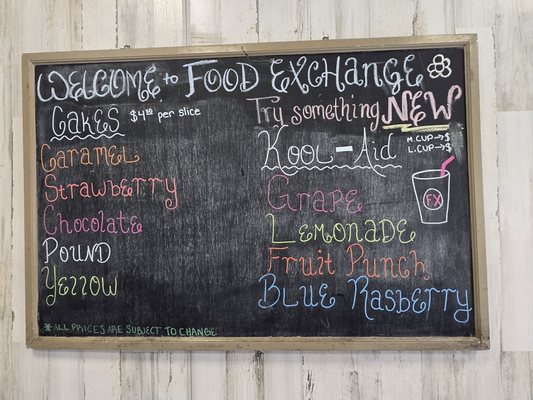 WELCOME to FOOD EXCHANGE
Cakes $4.00 per slice
Caramel
Strawberry
Chocolate
POUND
Yellow
*ALL PRICES ARE SUBJECT TO CHANGE
Try something NEW
Kool-Aid
M.CUP→$
L.CUP→$
FX
GRAPE
LEMONADE
Fruit Punch
BLUE RASBERRY